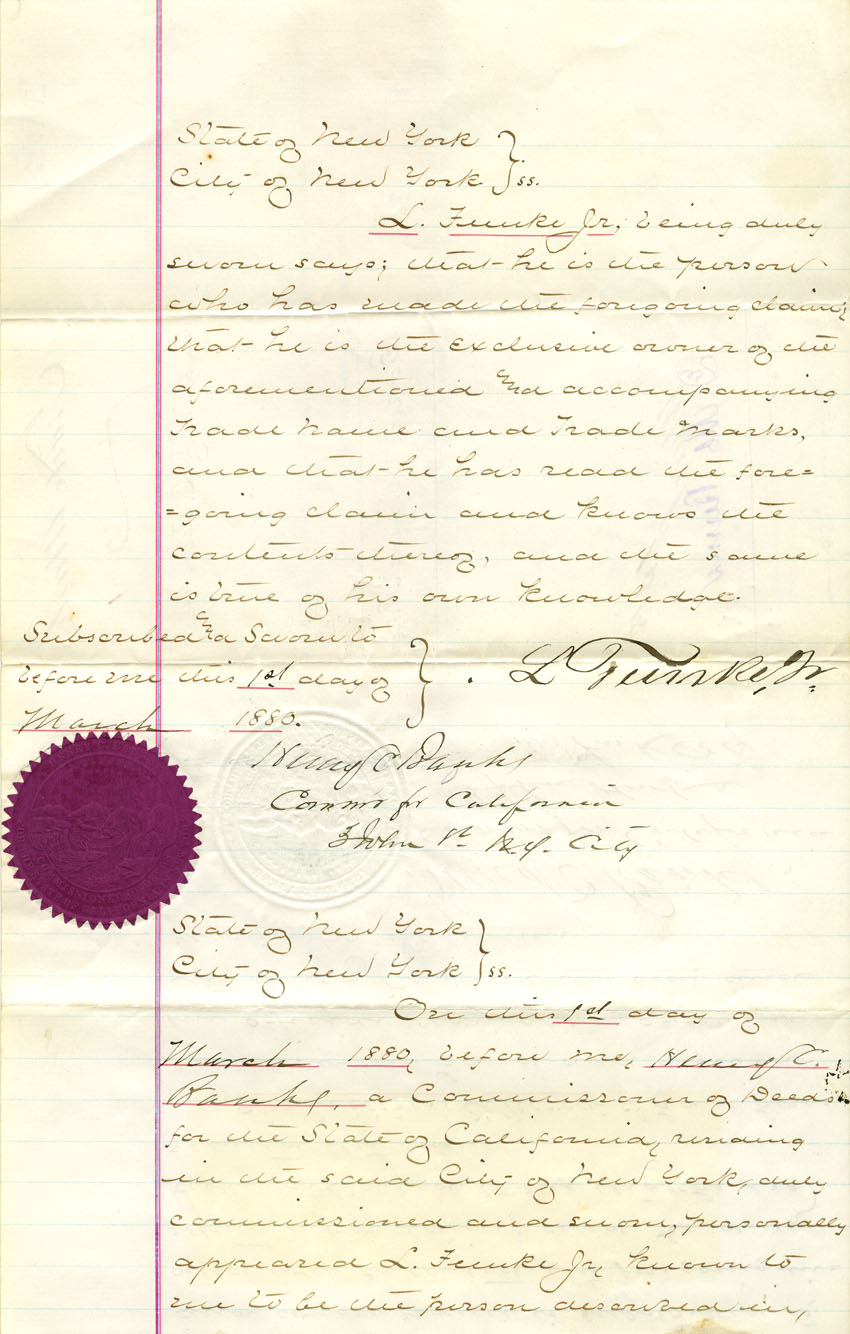 State of New York
City of New York } ss.
L. Funke Jr, being duly
sworn says; that he is the person
who has made the foregoing claim;
that he is the exclusive owner of the
aforementioned and accompanying
Trade Name and Trade Marks,
and that he has read the fore=
=going claim and knows the
contents thereof, and the same
is true of his own knowledge.
Subscribed and Sworn to
before me this 1st day of
March 1880.
L Funke, Jr.
Henry C Banks
Commr for California
3 John St. N.Y. City
State of New York
City of New York } ss.
On this 1st day of
March 1880, before me, Henry C.
Banks, a Commissioner of Deeds
for the State of California, residing
in the said City of New York, duly
commissioned and sworn, personally
appeared L. Funke Jr, known to
me to be the person described in,